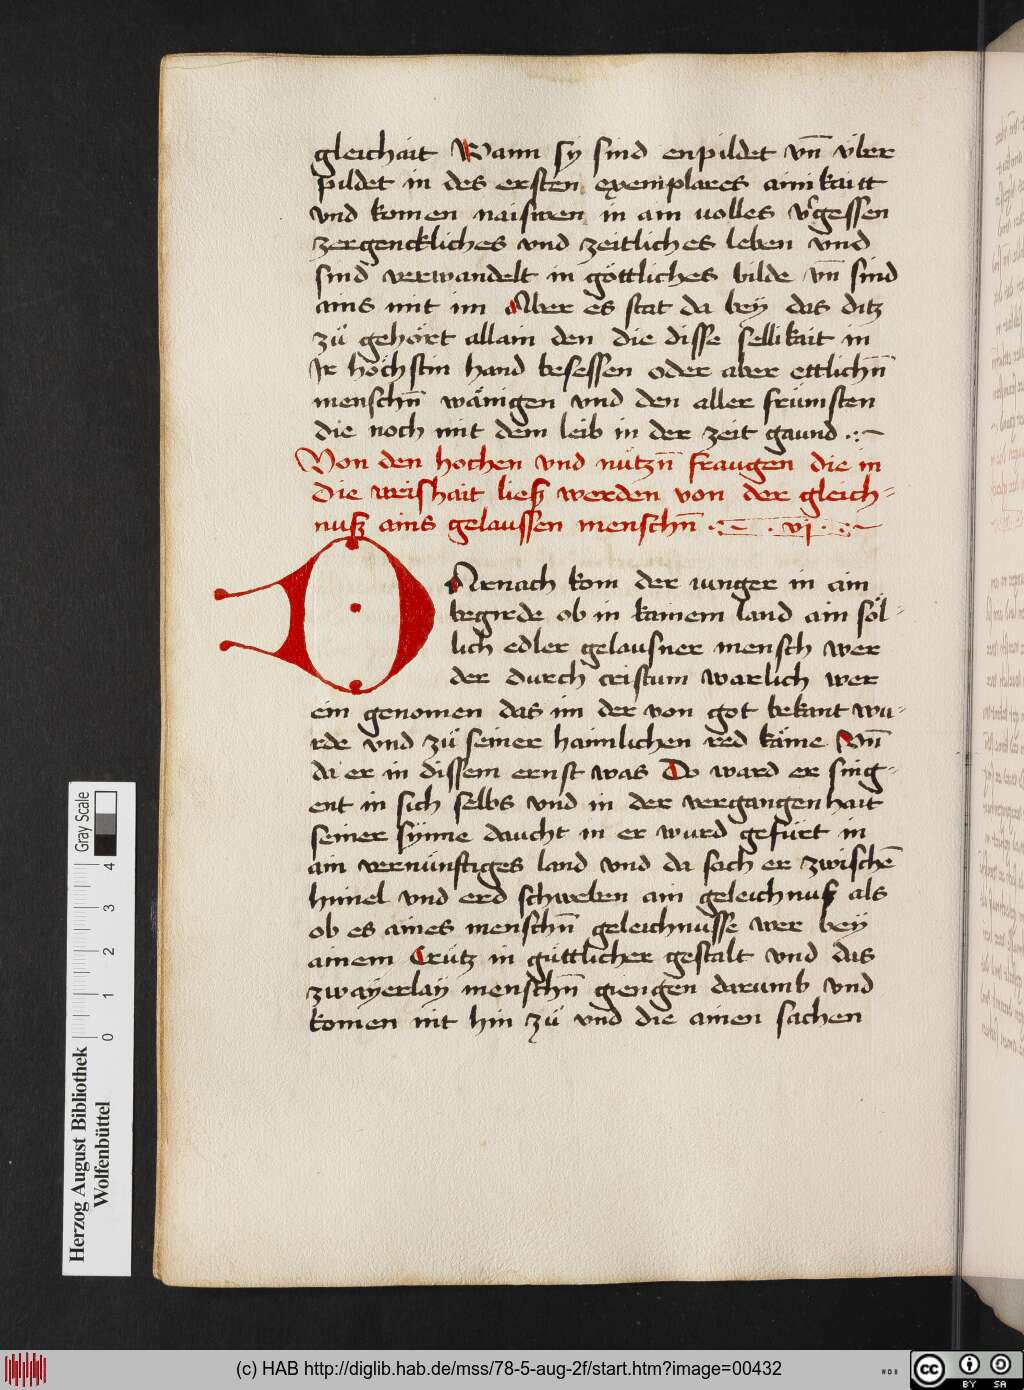 gleichait Wann sy sind enpildet vn̄ v́ber
pildet in des ersten exemplares ainikaitt
vnd komen naiswen in ain volles v'gessen
zergenckliches vnd zeitliches leben vnd
sind verwandelt in göttliches bilde vn̄ sind
ains mit im Aber es stat da bey das ditz
zů gehört allain den die disse sellikait in
Ir höchstin hand besessen oder aber ettlichn̄
menschn̄ wänigen vnd den aller frümsten
die noch mit dem leib in der zeit gaund
Von den hochen vnd nützn̄ fraugen die in
Die weishait liesz werden von der gleich-
nusz ains gelaussen menschn̄ . vj .
DArnach kom der iunger in ain
begirde ob in kainem land ain söl-
lich edler gelausner mensch wer
der durch cristum warlich wer
ein genomen das im der von got bekant wu-
rde vnd zů seiner haimlichen red käme Vnn̄
da er in dissem ernst was Do ward er sing-
ent in sich selbs vnd in der vergangenhait
seiner synne daucht in er wurd gefürt in
ain vernünftiges land vnd da sach er zwischē
himel vnd erd schweben ain geleichnusz als
ob es aines menschn̄ geleichnusse wer bey
ainem Crütz in güttlicher gestalt vnd das
zwayerlay menschn̄ giengen darumb vnd
komen nit hin zů vnd die ainen sachen
Herzog August Bibliothek
Wolfenbüttel
Gray Scale
0 1 2 3 4
(c) HAB http://diglib.hab.de/mss/78-5-aug-2f/start.htm?image=00432
cc BY SA